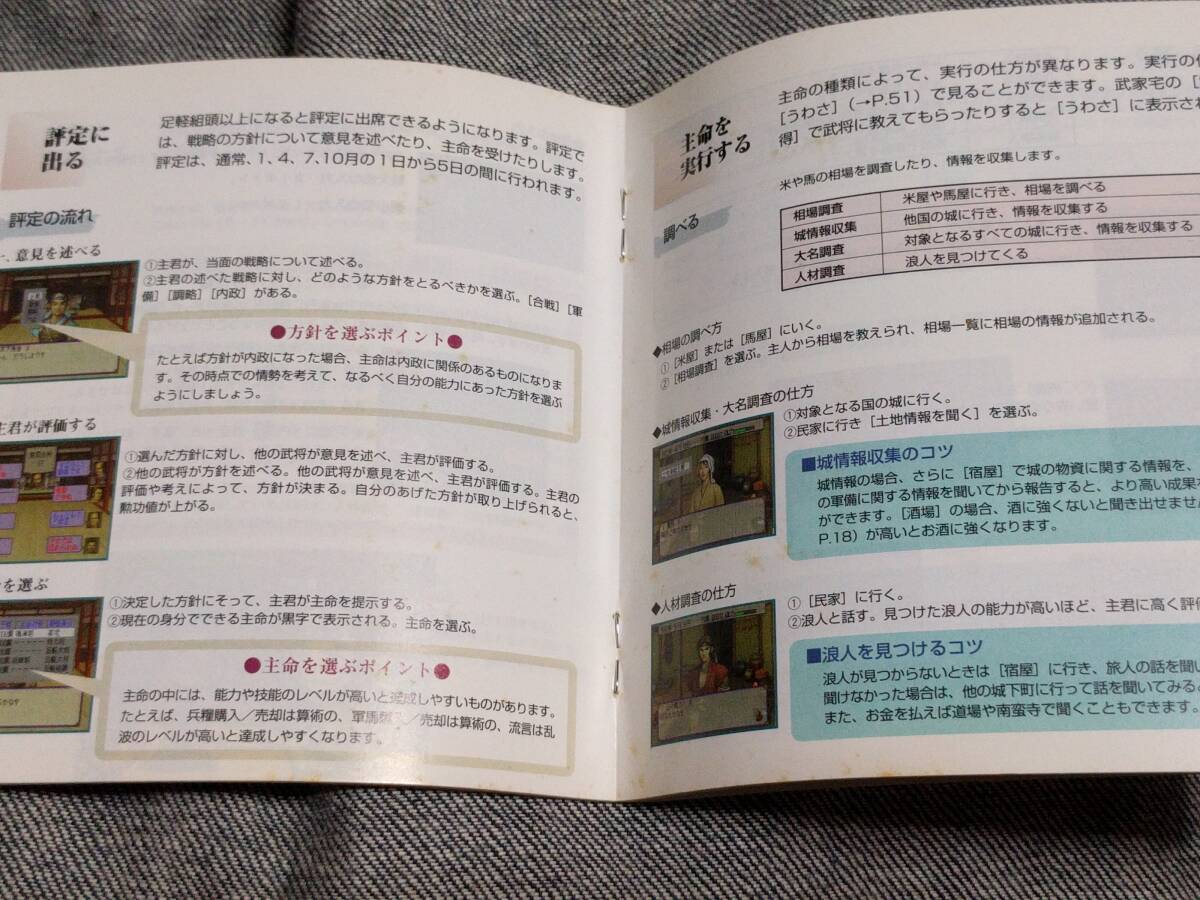 評定に
出る
足軽組頭以上になると評定に出席できるようになります。評定で
は、戦略の方針について意見を述べたり、主命を受けたりします。
評定は、通常、1、4、7、10月の1日から5日の間に行われます。
評定の流れ
一、意見を述べる
①主君が、当面の戦略について述べる。
②主君の述べた戦略に対し、どのような方針をとるべきかを選ぶ。[合戦][軍
備][調略][内政]がある。
●方針を選ぶポイント●
たとえば方針が内政になった場合、主命は内政に関係のあるものになりま
す。その時点での情勢を考えて、なるべく自分の能力にあった方針を選ぶ
ようにしましょう。
主君が評価する
①選んだ方針に対し、他の武将が意見を述べ、主君が評価する。
②他の武将が方針を述べる。他の武将が意見を述べ、主君が評価する。主君の
評価や考えによって、方針が決まる。自分のあげた方針が取り上げられると、
勲功値が上がる。
を選ぶ
①決定した方針にそって、主君が主命を提示する。
②現在の身分でできる主命が黒字で表示される。主命を選ぶ。
●主命を選ぶポイント●
主命の中には、能力や技能のレベルが高いと達成しやすいものがあります。
たとえば、兵糧購入/売却は算術の、軍馬購入/売却は算術の、流言は乱
波のレベルが高いと達成しやすくなります。
主命を
実行する
主命の種類によって、実行の仕方が異なります。実行の仕
[うわさ](→P.51)で見ることができます。武家宅の[
得]で武将に教えてもらったりすると[うわさ]に表示され
調べる
米や馬の相場を調査したり、情報を収集します。
相場調査 米屋や馬屋に行き、相場を調べる
城情報収集 他国の城に行き、情報を収集する
大名調査 対象となるすべての城に行き、情報を収集する
人材調査 浪人を見つけてくる
◆相場の調べ方
①[米屋]または[馬屋]にいく。
②[相場調査]を選ぶ。主人から相場を教えられ、相場一覧に相場の情報が追加される。
◆城情報収集・大名調査の仕方
①対象となる国の城に行く。
②民家に行き[土地情報を聞く]を選ぶ。
■城情報収集のコツ
城情報の場合、さらに[宿屋]で城の物資に関する情報を、
の軍備に関する情報を聞いてから報告すると、より高い成果
ができます。[酒場]の場合、酒に強くないと聞き出せませ
P.18)が高いとお酒に強くなります。
◆人材調査の仕方
①[民家]に行く。
②浪人と話す。見つけた浪人の能力が高いほど、主君に高く評価
■浪人を見つけるコツ
浪人が見つからないときは[宿屋]に行き、旅人の話を聞い
聞けなかった場合は、他の城下町に行って話を聞いてみる
また、お金を払えば道場や南蛮寺で聞くこともできます。